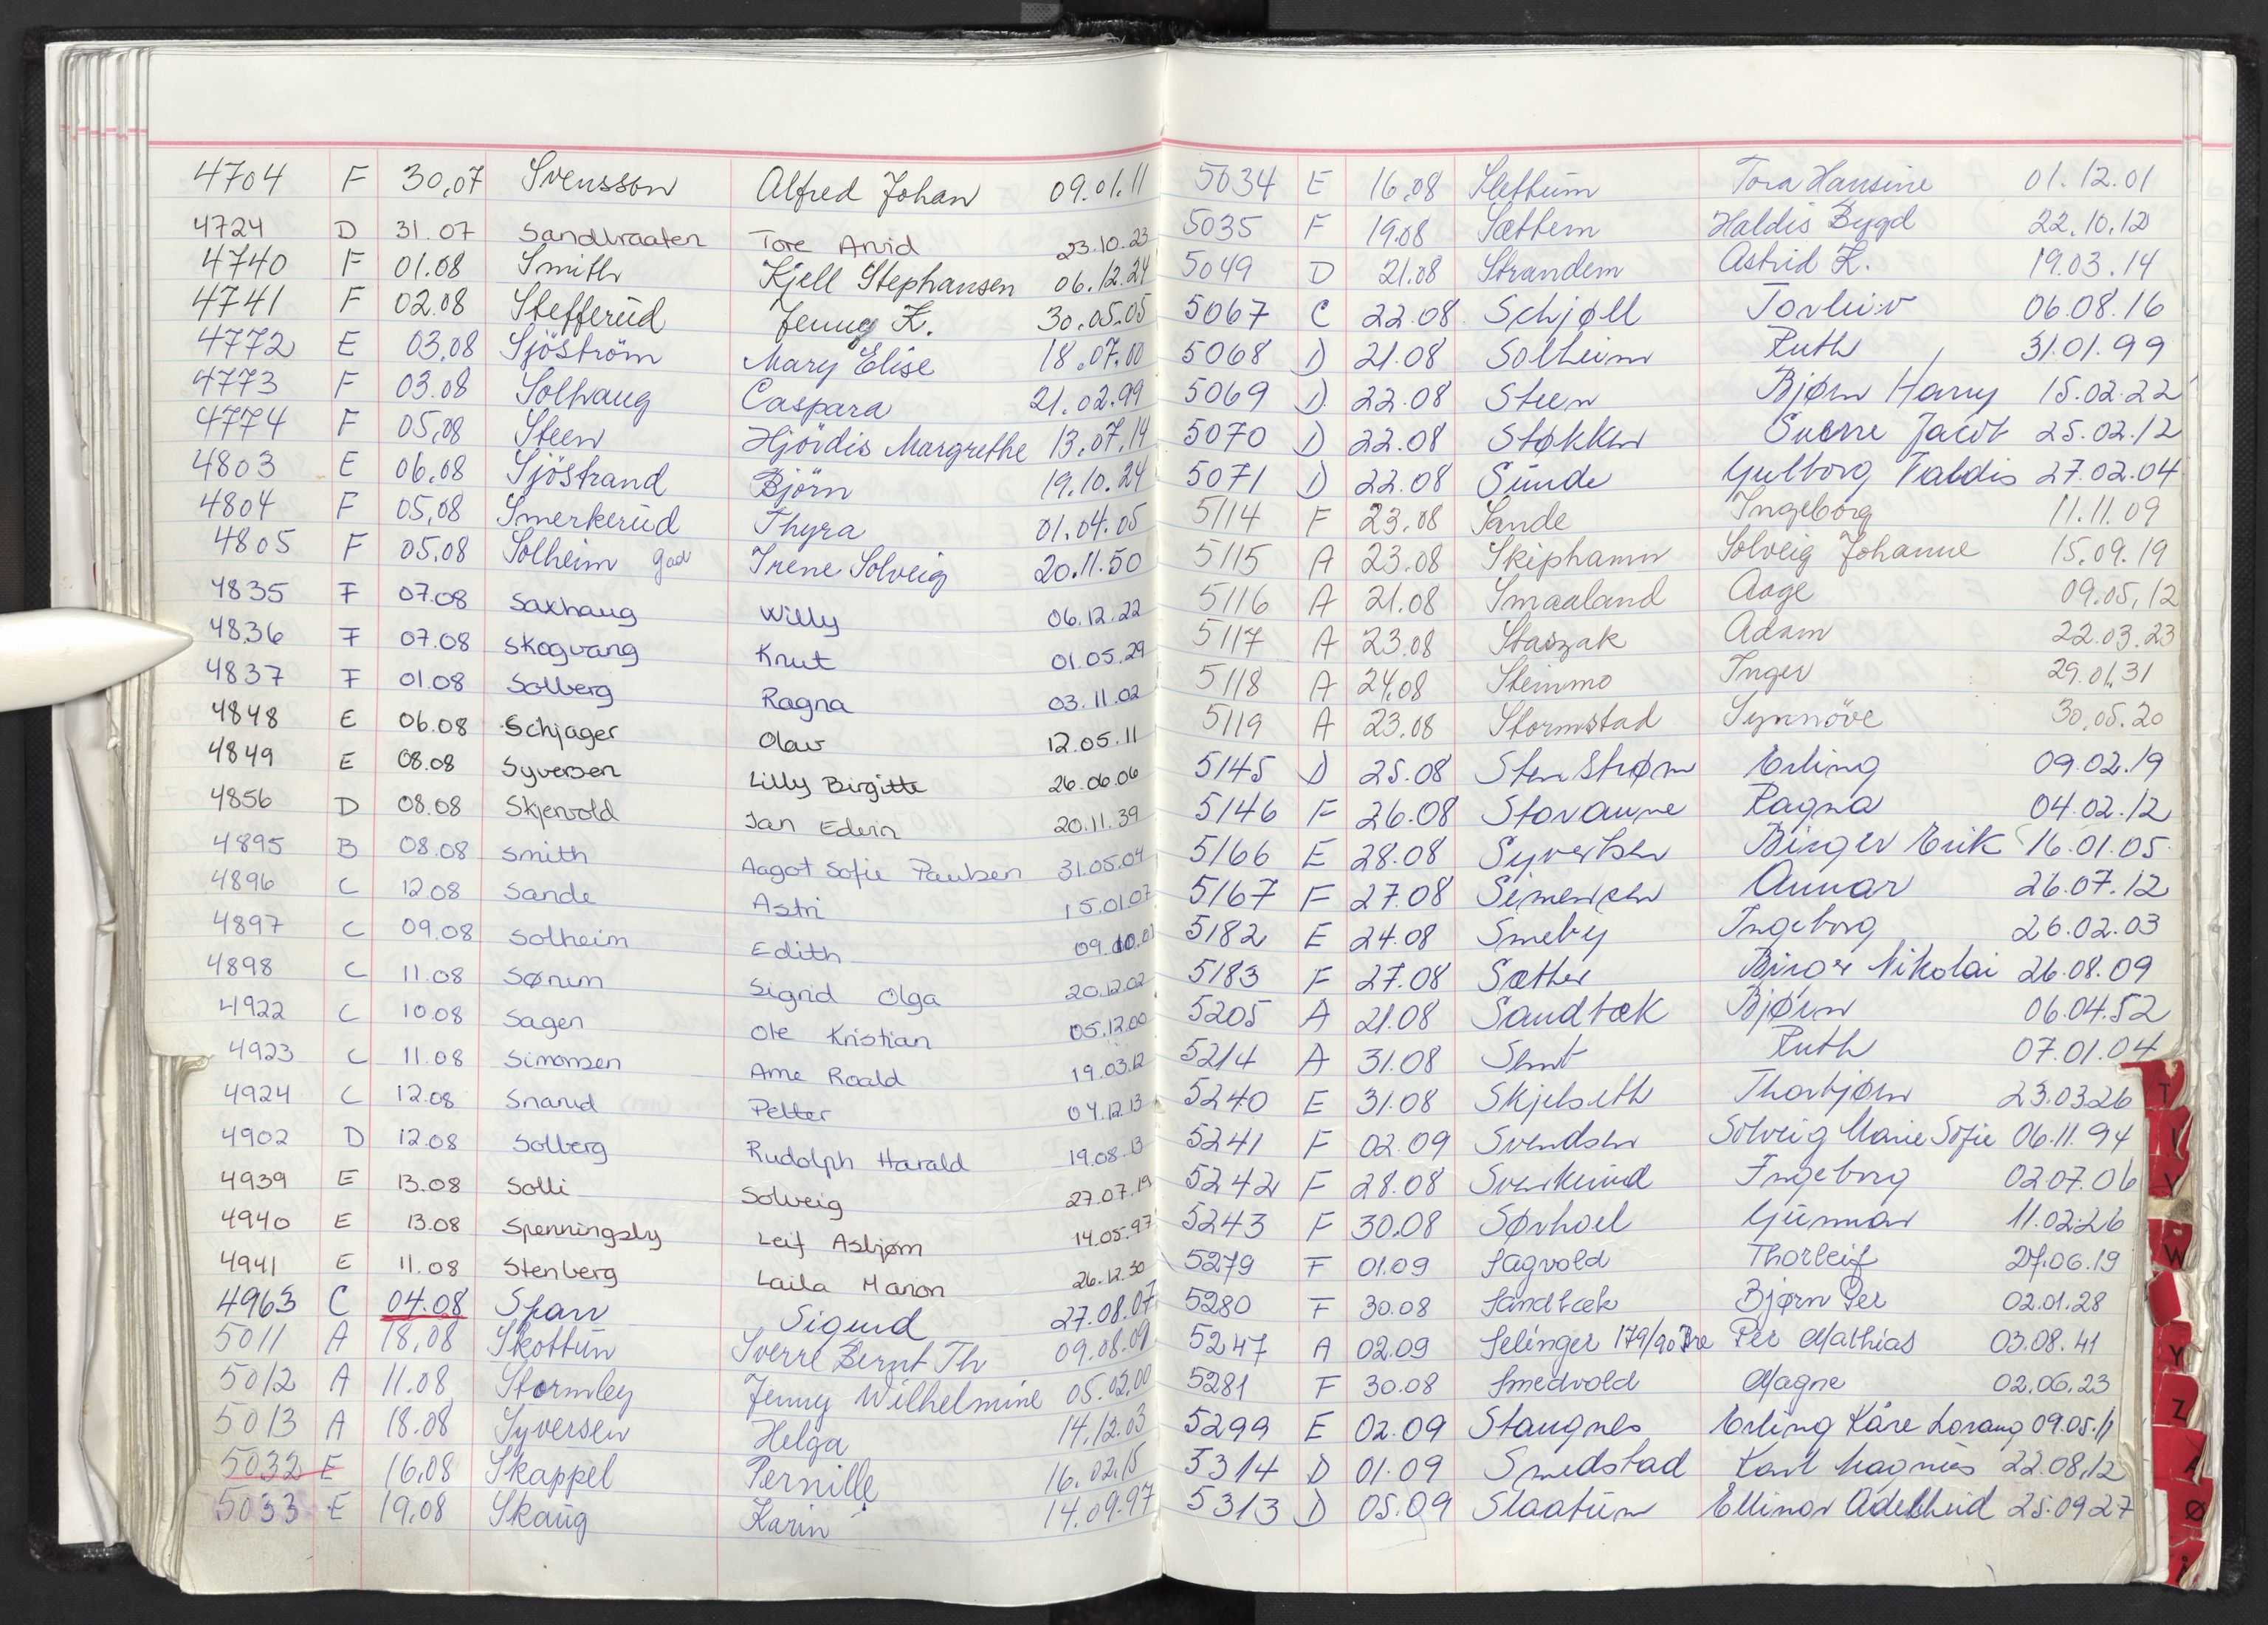 4704 F 30.07 Svensson Alfred Johan 09.01.11
4724 D 31.07 Sandbraaten Tore Arvid 23.10.23
4740 F 01.08 Smith Kjell Stephansen 06.12.24
4741 F 02.08 Stefferud Jenny K. 30.05.05
4772 E 03.08 Sjöström Mary Elise 18.07.00
4773 F 03.08 Solhaug Caspara 21.02.99
4774 F 05.08 Steen Hjördis Margrethe 13.07.14
4803 E 06.08 Sjöstrand Björn 19.10.24
4804 F 05.08 Smerkerud Thyra 01.04.05
4805 F 05.08 Solheim Irene Solveig 20.11.50
4835 F 07.08 Saxhaug Willy 06.12.22
4836 F 07.08 Skogvang Knut 01.05.29
4837 F 01.08 Solberg Ragna 03.11.02
4848 E 06.08 Schjager Olav 12.05.11
4849 E 08.08 Syversen Lilly Birgitte 26.06.06
4856 D 08.08 Skjervold Jan Edvin 20.11.39
4895 B 08.08 Smith Aagot Sofie Paulsen 31.05.04
4896 C 12.08 Sande Astri 15.01.07
4897 C 09.08 Solheim Edith 09.10.01
4898 C 11.08 Sørum Sigrid Olga 20.12.02
4922 C 10.08 Sagen Ole Kristian 05.12.00
4923 C 11.08 Simonsen Arne Roald 19.03.12
4924 C 12.08 Snarud Petter 04.12.13
4902 D 12.08 Solberg Rudolph Harald 19.08.13
4939 E 13.08 Solli Solveig 27.07.19
4940 E 13.08 Spenningsby Leif Asbjørn 14.05.97
4941 E 11.08 Stenberg Laila Marion 26.12.30
4963 C 04.08 Sparr Sigurd 27.08.07
5011 A 18.08 Skottun Sverre Bernt Th 09.08.09
5012 A 11.08 Stormley Jenny Wilhelmine 05.02.00
5013 A 18.08 Syversen Helga 14.12.03
5032 E 16.08 Skappel Pernille 16.02.15
5033 E 19.08 Skaug Karin 14.09.97
5034 E 16.08 Slettum Tora Hansine 01.12.01
5035 F 19.08 Sættem Haldis Bygd 22.10.12
5049 D 21.08 Strandem Astrid K. 19.03.14
5067 C 22.08 Schjøll Torleiv 06.08.16
5068 D 21.08 Solheim Ruth 31.01.99
5069 D 22.08 Steen Bjørn Harry 15.02.22
5070 D 22.08 Støkken Sverre Jacob 25.02.12
5071 D 22.08 Sunde Gulborg Valdis 27.02.04
5114 F 23.08 Sande Ingeborg 11.11.09
5115 A 23.08 Skiphamn Solveig Johanne 15.09.19
5116 A 21.08 Smaaland Aage 09.05.12
5117 A 23.08 Staszak Adam 22.03.23
5118 A 24.08 Steinmo Inger 29.01.31
5119 A 23.08 Stormstad Synnöve 30.05.20
5145 D 25.08 Stenstrøm Erling 09.02.19
5146 F 26.08 Stovaune Ragna 04.02.12
5166 E 28.08 Syvertsen Birger Erik 16.01.05
5167 F 27.08 Simensen Annar 26.07.12
5182 E 24.08 Smeby Ingeborg 26.02.03
5183 F 27.08 Sæther Birger Nikolai 26.08.09
5205 A 21.08 Sandbæk Bjørn 06.04.52
5214 A 31.08 Ruth 07.01.04
5240 E 31.08 Skjelseth Thorbjørn 23.03.26
5241 F 02.09 Svendsen Solveig Marie Sofie 06.11.94
5242 F 28.08 Sverkerud Ingeborg 02.07.06
5243 F 30.08 Sørhoel Gunnar 11.02.26
5279 F 01.09 Sagvold Thorleif 27.06.19
5280 F 30.08 Sandbæk Bjørn Per 02.01.28
5247 A 02.09 Selinger 179/90 Per Mathias 03.08.41
5281 F 30.08 Smedvold Magne 02.06.23
5299 E 02.09 Stangnes Erling Kåre Lorang 09.05.11
5314 D 01.09 Smedstad Karl Magnus 22.08.12
5313 D 05.09 Slaatun Ellinor Adelheid 25.09.27
T
V
W
Y
Z
Ø